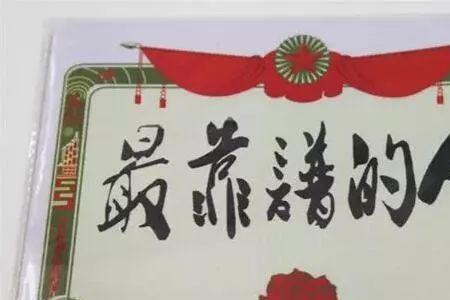 最靠谱的